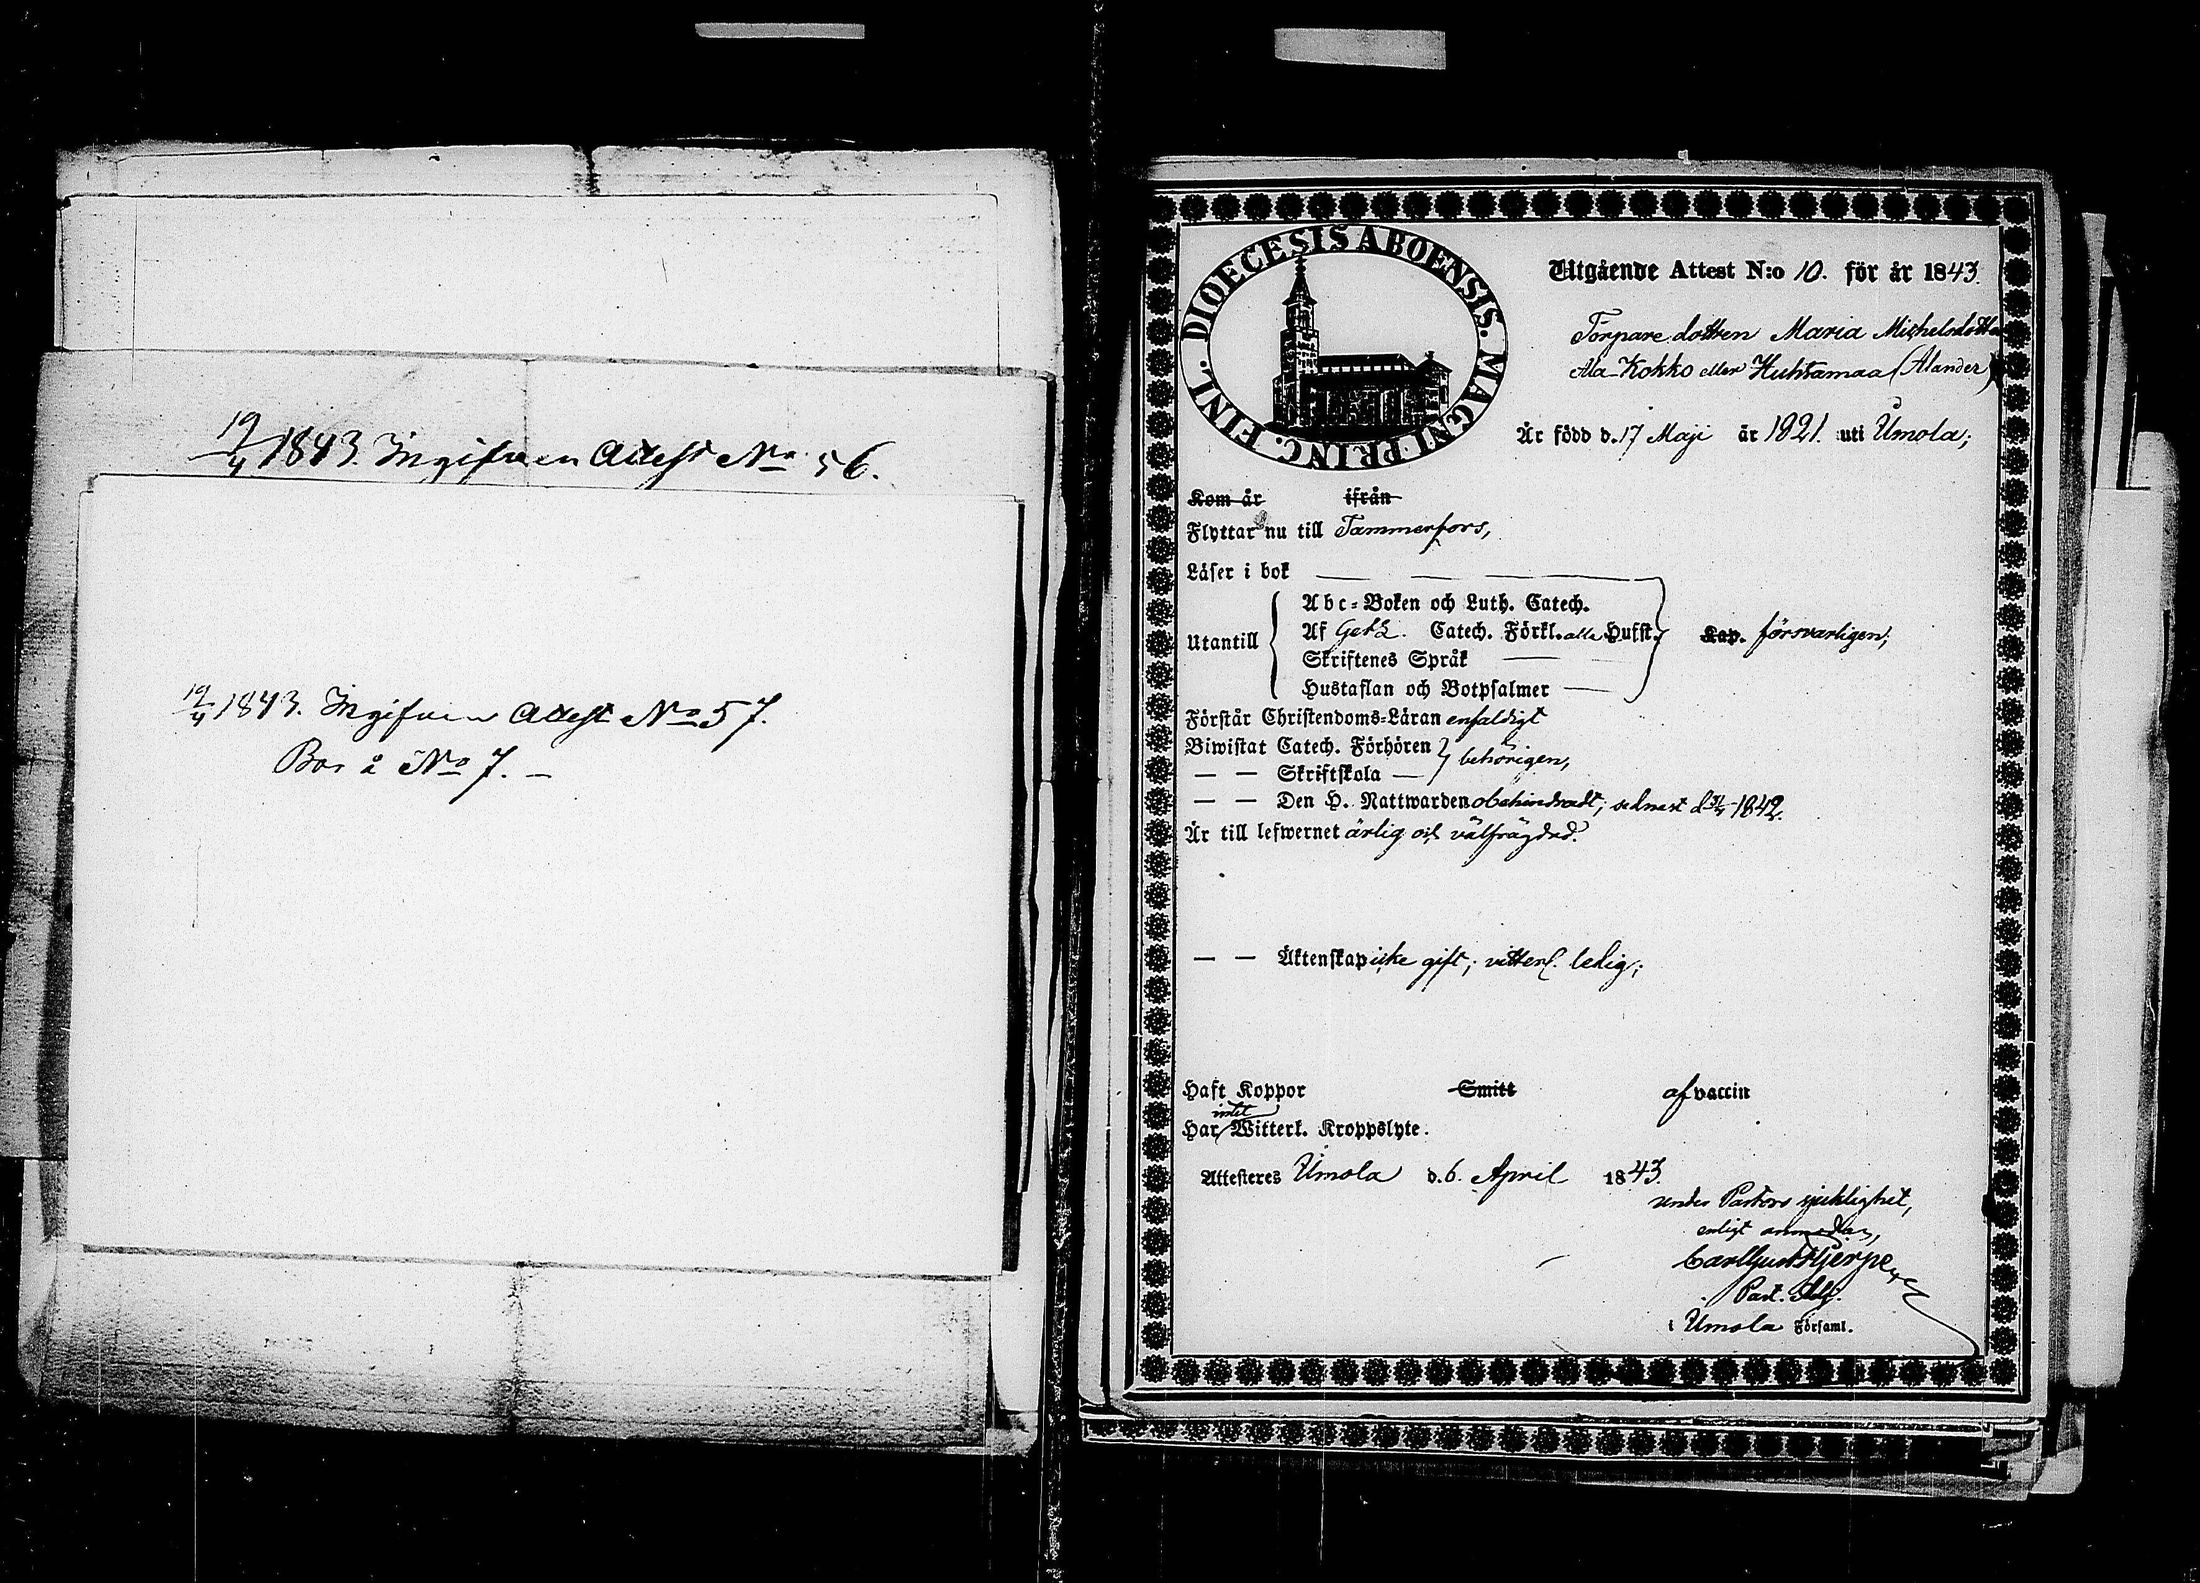 19/4 1843. Ingifven Attest No 56.
19/4 1843. Ingifven Attest No 57.
Bor å No 7. –
DIOECESIS ABOENSIS. MAGNI PRINC. FINL.
Utgående Attest N:o 10. för år 1843.
Torpare dottren Maria Michelsdotter
Ala-Kokko eller Huhtamaa (Alander)
Är född d. 17 Maji år 1821. uti Urnola;
Kom år ifrån
Flyttar nu till Tammerfors,
Läser i bok — — —
Abc-Boken och Luth. Catech.
Utantill Af Getz. Catech. Förkl. alla Hufst. Kap. försvarligen;
Skriftenes Språk —
Hustaflan och Botpsalmer —
Förstår Christendoms-Läran enfaldigt
Biwistat Catech. Förhören behörigen,
— — Skriftskola —
— — Den H. Nattwarden obehindradt; sednast d. 1842.
Är till lefwernet ärlig och välfrägdad.
— — Äktenskap icke gift; vitterl. ledig;
Haft Koppor Smitt af vaccin
intet
Har Witterl. Kroppslyte.
Attesteres Urnola d. 6. April 1843.
under Pastors sjuklighet,
enligt anmodan,
Carl Gust Hjerpe
Past. Adj.
i Urnola Församl.